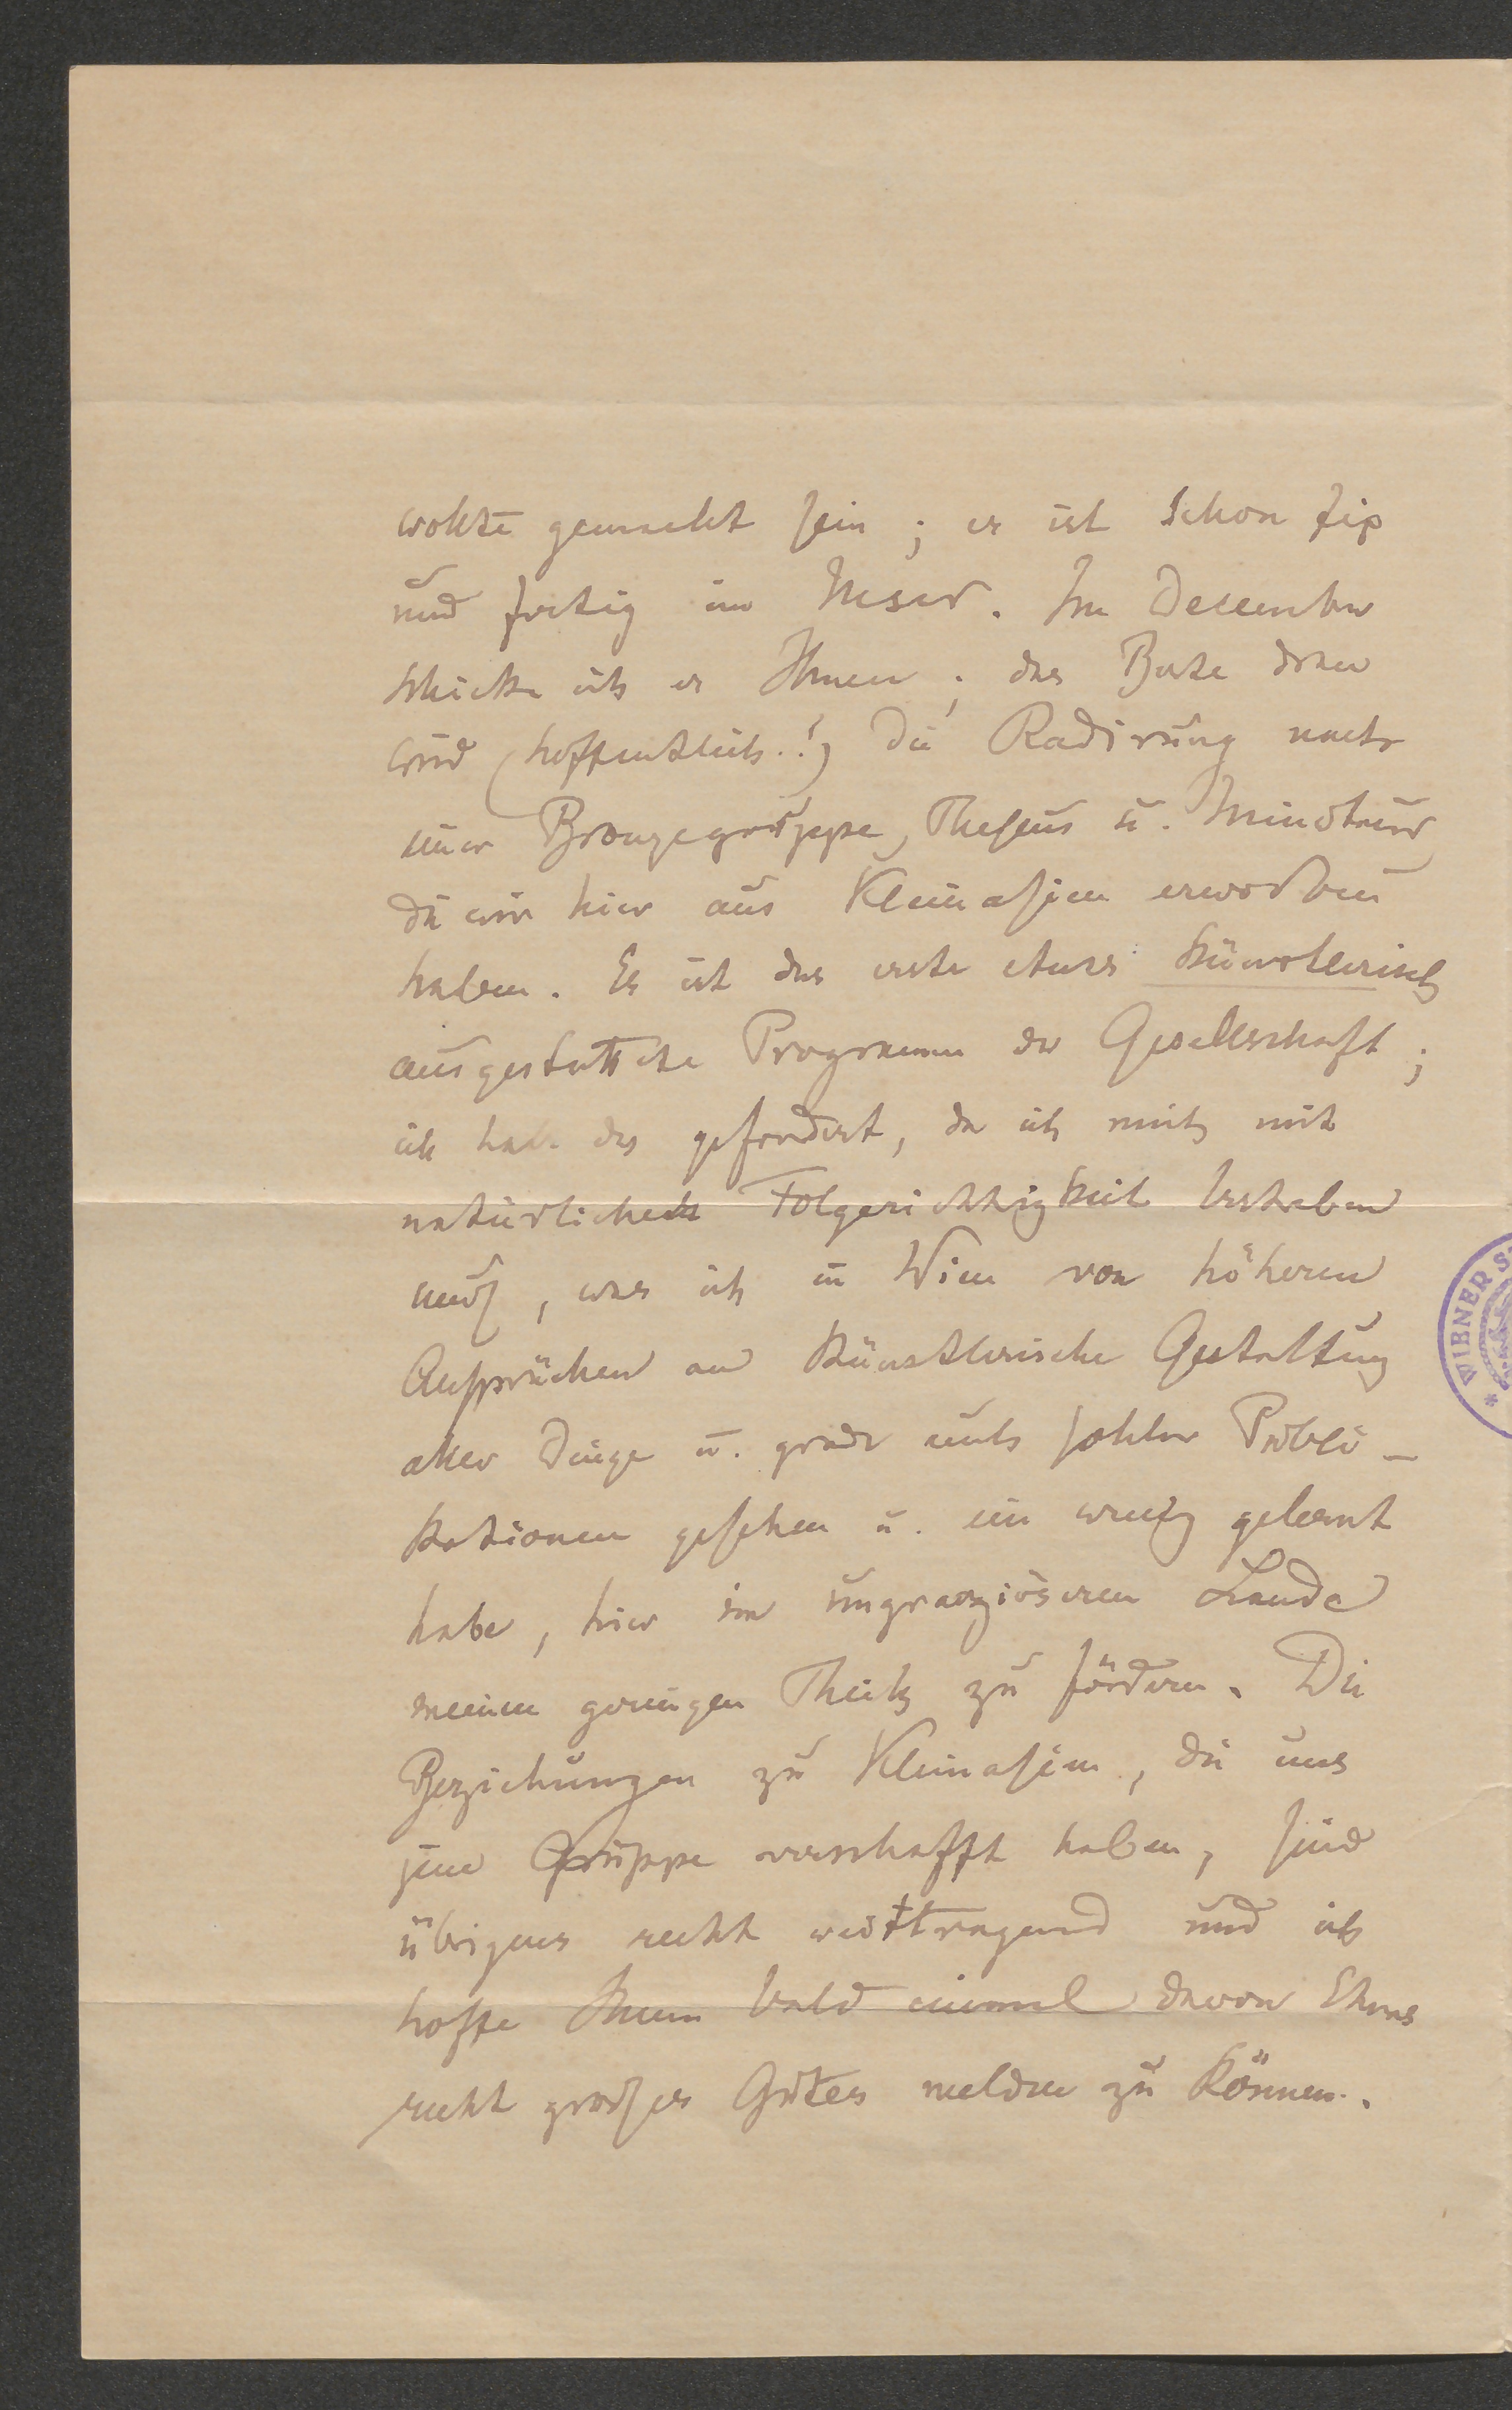 wollte gemacht sein; es ist schon fix
und fertig im Mscr. Im December
schicke ich es Ihnen; das Beste dran
wird (hoffentlich!) die Radirung nach
einer Bronzegruppe, Theseus u. Minotaur
die wir hier aus Kleinasien erworben
haben. Es ist das erste etwas künstlerisch
ausgestattete Programm der Gesellschaft;
ich habe das gefordert, da ich mich mit
natürlicher Folgerichtigkeit bestreben
muß, was ich in Wien von höheren
Ansprüchen an künstlerische Gestaltung
aller Dinge u. grade auch solcher Publi-
kationen gesehen u. ein wenig gelernt
habe, hier im ungraziöseren Lande
meinen geringen Theils zu fördern. Die
Beziehungen zu Kleinasien, die uns
jene Gruppe verschafft haben, sind
übrigens recht weittragend und ich
hoffe Ihnen bald einmal davon Etwas
recht großes Gutes melden zu können.
WIENER S